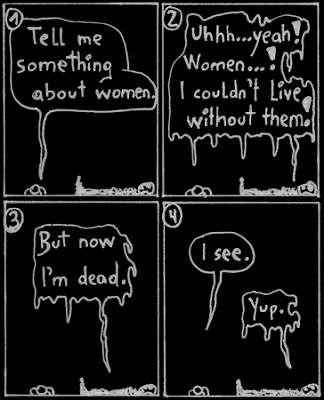 1
Tell me
something
about women.
2
Uhhh...yeah!
Women...!
I couldn't Live
without them!
3
But now
I'm dead.
4
I see.
Yup.